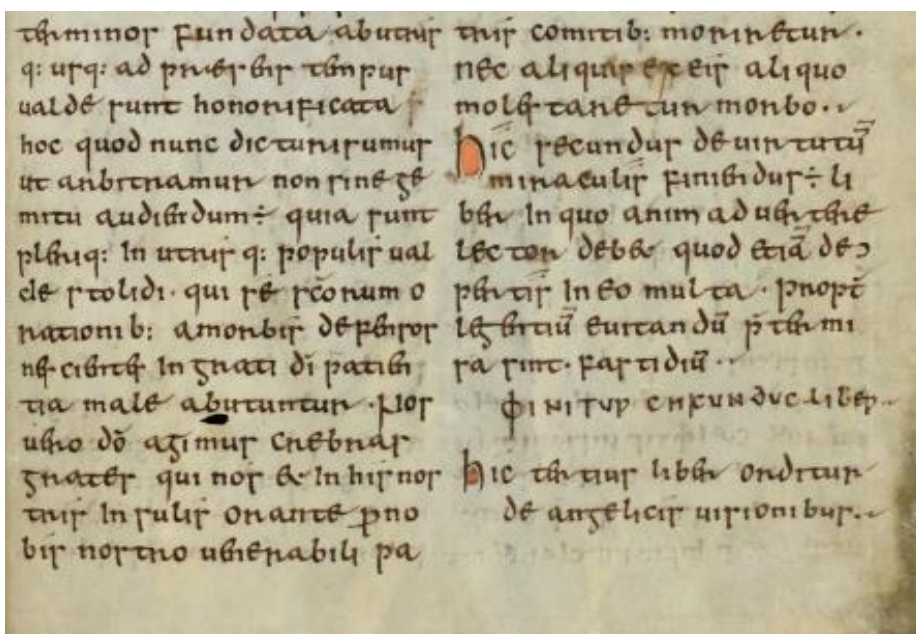 terminos fundata abutris
q: usq: ad praesens tempus
ualde sunt honorificata
hoc quod nunc dicturisumus
ut arbitramur non sine ge
mitu audiendum÷ quia sunt
pleriq: In utris q: populis ual
de stolidi· qui se scōrum o
rationib: a morbis defensos
nescientes Ingrati dī patien
tia male abutuntur · Nos
uero dō agimus crebras
grates qui nos & In his nos
tris Insulis orante p̄ no
bis nostro uenerabili pa
tris comitib: moriretur·
nec aliquis ex eis aliquo
molestaretur morbo··
Hic secundus de uirtutū
miraculis finiendus÷ li
ber In quo animaduertere
lector debet quod etiā de ɔ
pertis In eo multa · propt̄
legentiū euitandū p̄termi
sa sint· fastidiū··
ΦΙΝΙΤΥΡ CΗΚΥΝΔΥC ΛΙΒΕΡ··
Hic tertius liber orditur
de angelicis uisionibus··